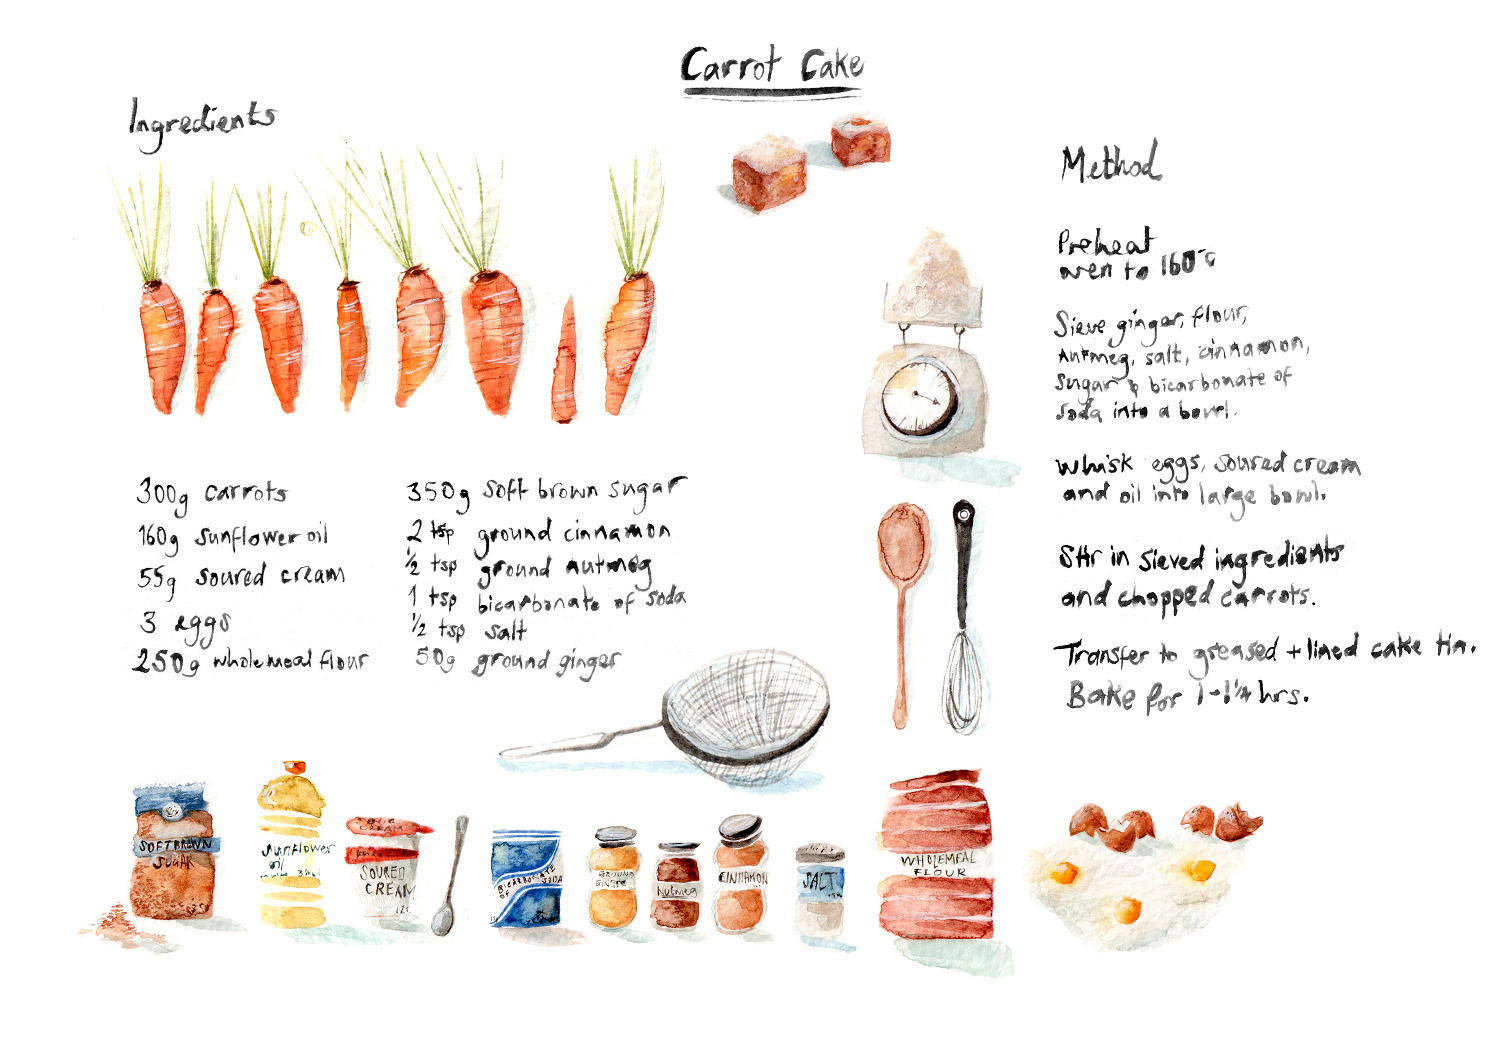 Carrot Cake
Ingredients
300g carrots
160g sunflower oil
55g soured cream
3 eggs
250g wholemeal flour
350g soft brown sugar
2 tsp ground cinnamon
½ tsp ground nutmeg
1 tsp bicarbonate of soda
½ tsp salt
50g ground ginger
Method
Preheat
oven to 160°c
Sieve ginger, flour,
nutmeg, salt, cinnamon,
sugar & bicarbonate of
soda into a bowl.
Whisk eggs, soured cream
and oil into large bowl.
Stir in sieved ingredients
and chopped carrots.
Transfer to greased + lined cake tin.
Bake for 1-1¼ hrs.
SOFT BROWN
SUGAR
Sunflower
oil
SOURED
CREAM
BICARBONATE
OF SODA
GROUND
GINGER
Nutmeg
CINNAMON
SALT
WHOLEMEAL
FLOUR